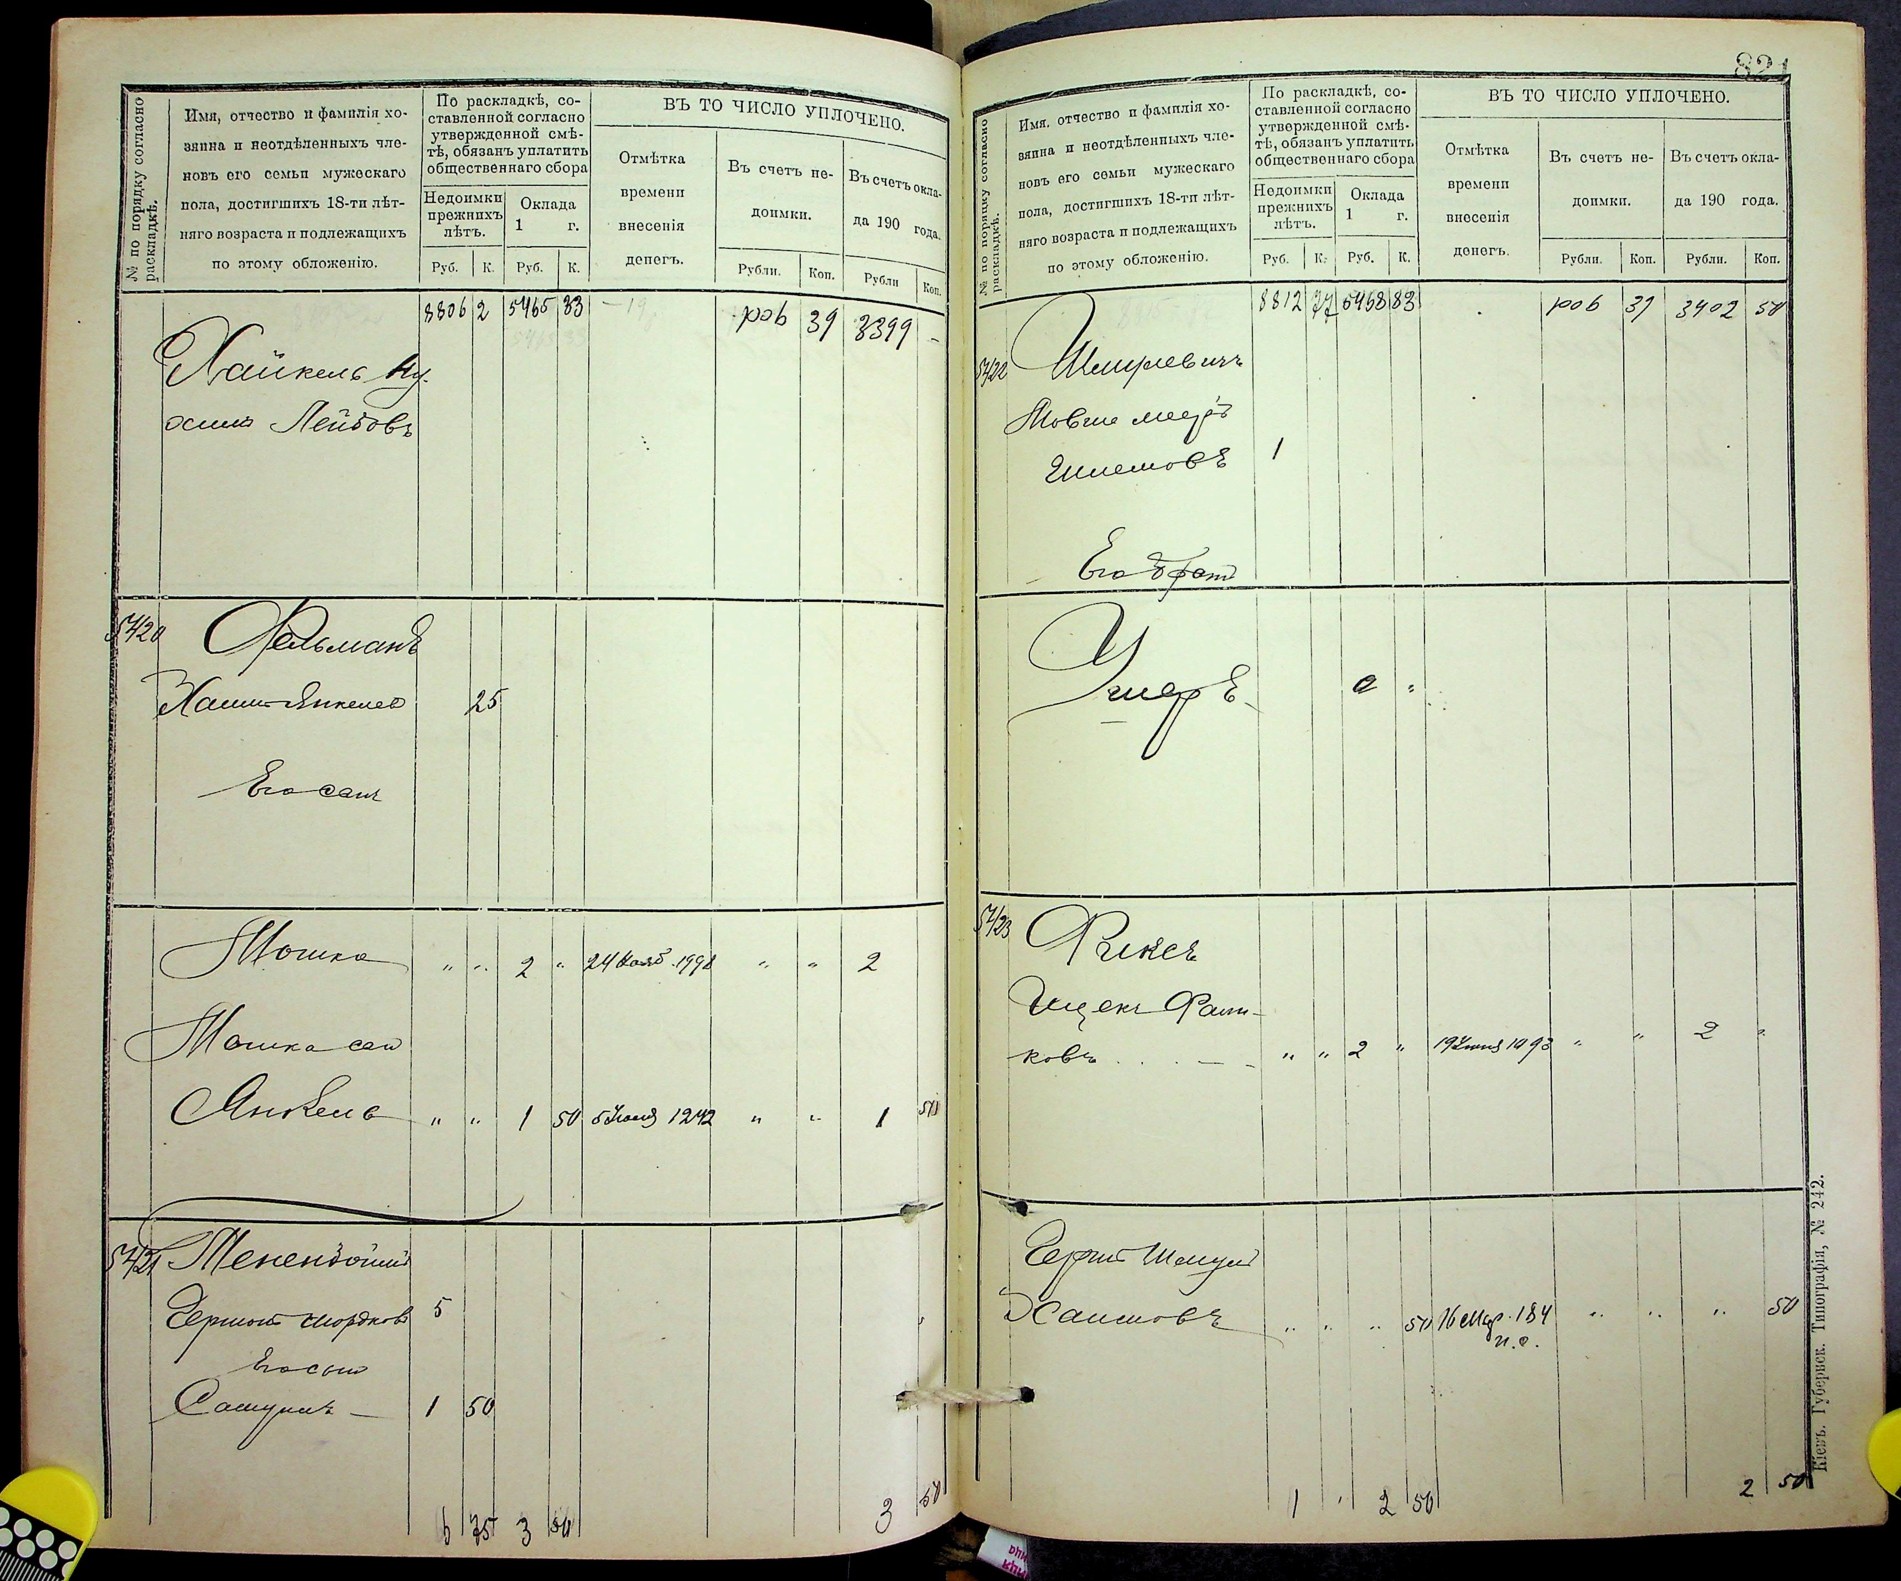 № по порядку согласно раскладкѣ.
Имя, отчество и фамилія хо-
зяина и неотдѣленныхъ чле-
новъ его семьи мужескаго
пола, достигшихъ 18-ти лѣт-
няго возраста и подлежащихъ
по этому обложенію.
По раскладкѣ, со-
ставленной согласно
утвержденной смѣ-
тѣ, обязанъ уплатить
общественнаго сбора
Недоимки
прежнихъ
лѣтъ.
Оклада
1 г.
Руб. К. Руб. К.
ВЪ ТО ЧИСЛО УПЛОЧЕНО.
Отмѣтка
времени
внесенія
денегъ.
Въ счетъ не-
доимки.
Въ счетъ окла-
да 190 года.
Рубли. Коп. Рубли Коп.
8806 2 5465 33 39 3399 -
Хайкель Ну-
химъ Лейбовъ
5420 Фельманъ
Хаимъ Янкелев 25
Его сын
Мошко " " 2 " " " 2
Мошка сын
Янкель " " 1 50 " " 1 50
5421
Гершон Мордков 5
Его сын
Самуилъ — 1 50
6 75 3 50 3 50
821
№ по порядку согласно раскладкѣ.
Имя, отчество и фамилія хо-
зяина и неотдѣленныхъ чле-
новъ его семьи мужескаго
пола, достигшихъ 18-ти лѣт-
няго возраста и подлежащихъ
по этому обложенію.
По раскладкѣ, со-
ставленной согласно
утвержденной смѣ-
тѣ, обязанъ уплатить
общественнаго сбора
Недоимки
прежнихъ
лѣтъ.
Оклада
1 г.
Руб. К. Руб. К.
ВЪ ТО ЧИСЛО УПЛОЧЕНО.
Отмѣтка
времени
внесенія
денегъ.
Въ счетъ не-
доимки.
Въ счетъ окла-
да 190 года.
Рубли. Коп. Рубли. Коп.
8812 77 5468 83 39 3402 50
5422 Шмулевичъ
1
Его брат
Ушеръ
5423 Фиксъ
Ицекъ
ковъ " " 2 " " " 2 "
Герш Шмуль
Хаимовъ " " " 50 " " " 50
1 " 2 50 2 50
Кіевъ. Губернск. Типографія, № 242.